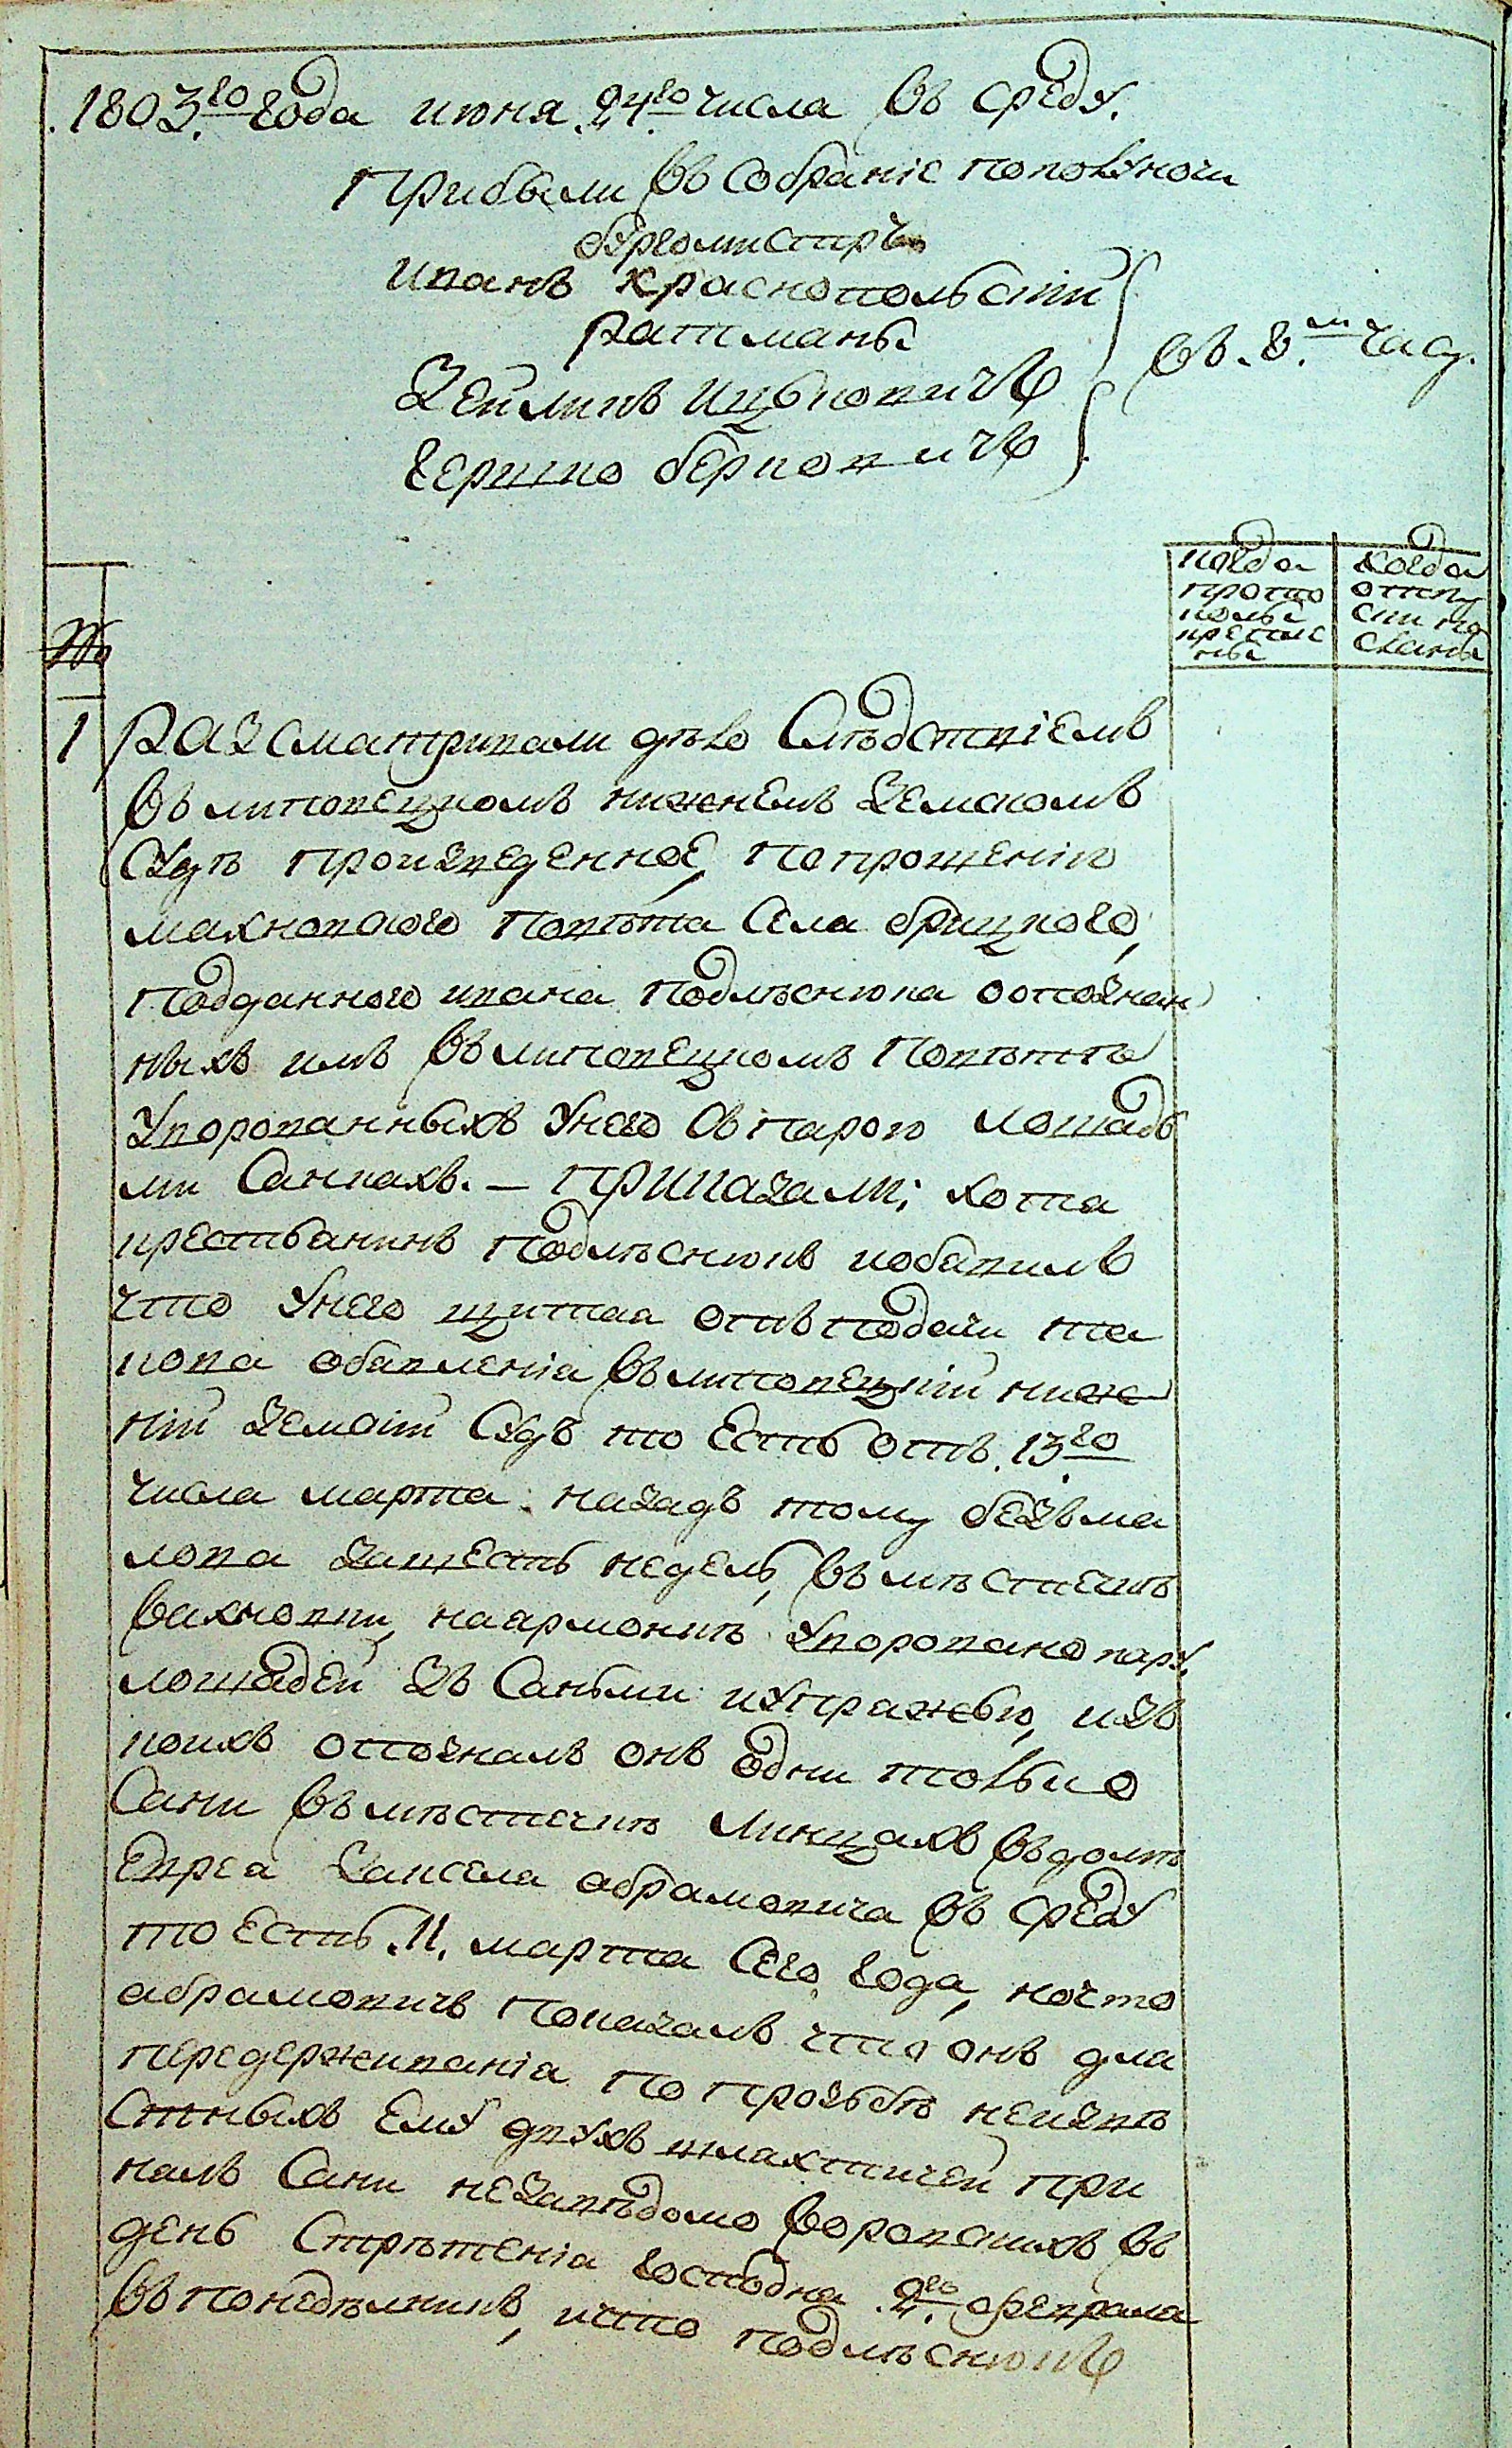 1803.го года июня 24го числа въ среду.
Прибыли въ собраніе пополуночи
бургомистръ
иванъ краснопольскій
ратманы
Зейликъ ицковичъ
гершко берковичъ
въ 8.м часу.
когда прото колы крепле ны
когда отпу ски по сланы
№
1 Разсматривали дѣло Слѣдствіемъ
въ липовецкомъ нижнемъ Земскомъ
Судѣ произведенное, попрошенію
махновского повѣта Села брицкого,
подданного ивана подлѣснюка оопознан
ныхъ имъ въ липовецкомъ повѣтѣ
уворованныхъ унего съпарою лошадь
ми Санкахъ. — приказали; хотя
крестьянинъ подлѣснюкъ иобявилъ
что унего щитая отъподачи та
кова обявленія въ липовецкій ниж
ній Земскій Судъ то Есть отъ 13го
числа марта назадъ тому безъма
лова зашесть недель, въ мѣстечкѣ
вахновки, наярмонкѣ уворовано пару
лошадей зъ Саньми иупряжью, изъ
коихъ опозналъ онъ одни только
Сани въ мѣстечкѣ линцахъ въдомѣ
Еврея Занселя абрамовича въ среду
то Есть 11. марта Сего года, ночто
абрамовичъ показалъ что онъ для
передерживанія по прозьбѣ неизвѣ
стныхъ Ему двухъ шляхтичей при
нялъ Сани незавѣдомо воровскихъ въ
день Стрѣтенія господня 2.го февраля
въ понедѣлникъ, ичто подлѣснюкъ